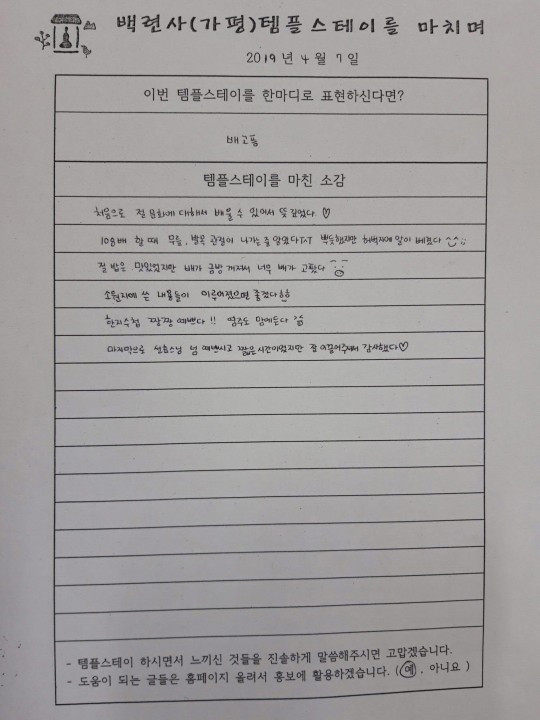 백련사(가평)템플스테이를 마치며
2019년 4월 7일
이번 템플스테이를 한마디로 표현하신다면?
배고픔
템플스테이를 마친 소감
처음으로 절 문화에 대해서 배울 수 있어서 뜻 깊었다. ♡
108배 할 때 무릎, 발목 관절이 나가는 줄 알았다TㅅT 뿌듯했지만 허벅지에 알이 베겼다 ^^;;
절 밥은 맛있었지만 배가 금방 꺼져서 너무 배가 고팠다
소원지에 쓴 내용들이 이루어졌으면 좋겠다ㅎㅎ
한지수첩 짱짱 예쁘다 !! 염주도 맘에든다
마지막으로 스님 넘 예쁘시고 짧은시간이었지만 잘 이끌어주셔서 감사했다♡
- 템플스테이 하시면서 느끼신 것들을 진솔하게 말씀해주시면 고맙겠습니다.
- 도움이 되는 글들은 홈페이지 올려서 홍보에 활용하겠습니다. (예, 아니요)